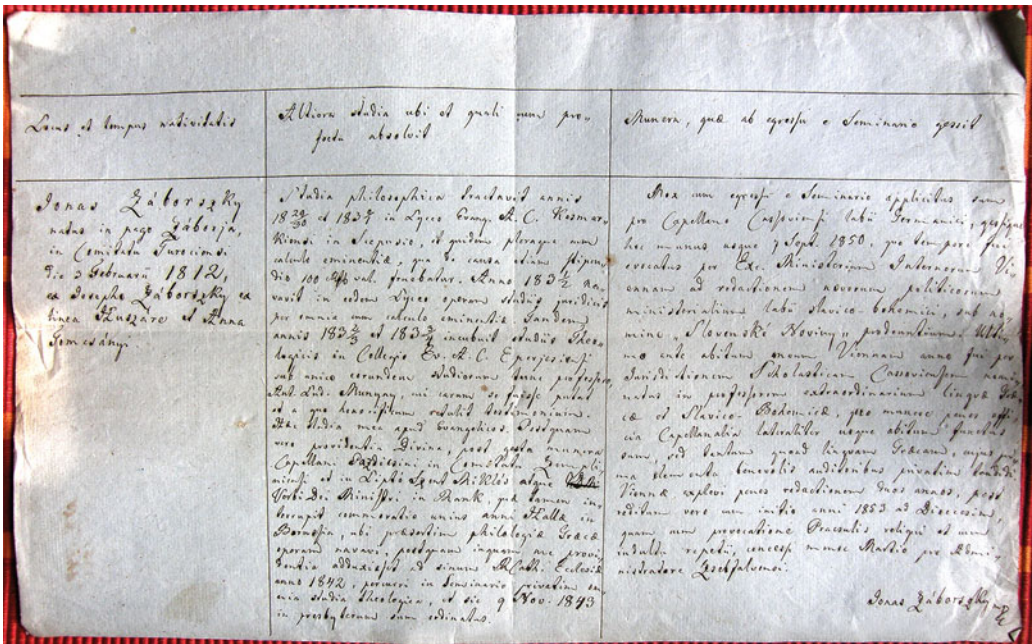 Locus et tempus nativitatis
Altiora studia ubi et quali cum pro-
fectu absolvit
Munera, quæ ab egressu e Seminario gessit
Jonas Záborszky
natus in pago Záborja,
in Comitatu Turociensi
die 3 Februarii 1812,
ex Josepho Záborszky ex
linea et Anna
Studia philosophica tractavit annis
18 29/30 et 183 in Lyceo Evang. A. C. Kesmar-
kiensi in Scepusio, et quidem pleraque cum
calculo eminentiæ, qua de causa etiam stipen-
dio 100 val. fruebatur. Anno 183 1/2 na-
vavit in eodem Lyceo operam studiis juridicis
per omnia cum calculo eminentiæ. Tandem
annis 183 2/3 et 183 3/4 incubuit studiis Theo-
logicis in Collegio Ev. A. C. Eperjesiensi
sub unico eorundem studiorum tunc professore
Lud. Munyay, cui carum se fuisse putat
et a quo honorificum retulit testimonium.
Hæc studia mea apud Evangelicos. Postquam
vero providentia Divina, post gesta munera
Capellani in Comitatu
et in Liptó Szent Miklós atque
Verbi Dei Ministri in Rank, quæ tamen in-
terrupit commoratio unius anni Hallæ in
Borussia, ubi præsertim philologiæ Græcæ
operam navavi, postquam inquam me provi-
dentia adduxisset ad sinum R. Cath. Ecclesiæ
anno 1842, percurri in Seminario privatim om-
nia studia theologica, et sic 9 Nov. 1843
in presbyterum sum ordinatus.
Mox cum egressu e Seminario applicitus sum
pro Capellano Cassoviensi labii Germanici, gessique
hoc munus usque 7 Sept. 1850, quo tempore fui
evocatus per Exc. Ministerium Internorum Vi-
ennam ad redactionem novorum politicorum
ministerialium labii slavico-bohemici, sub no-
mine "Slovenské Noviny" prodeuntium. Ulti-
mo ante abitum meum Viennam anno fui per
Jurisdictionem Scholasticam Cassoviensem nomi-
natus in professorem extraordinarium linguæ Græ-
cæ et Slavico-Bohemicæ, quo munere penes offi-
cia Capellanalia lateraliter usque abitum functus
sum, sed tantum quoad linguam Græcam, cujus pri-
ma elementa benevolis auditoribus privatim tradidi.
Viennæ explevi penes redactionem duos annos, post
reditum vero cum initio anni 1853 ad Diœcesim
quam cum provocatione Praesulis reliqui et cum
indultu repetii, concessi mense Martio pro Admi-
nistratore
Jonas Záborszky